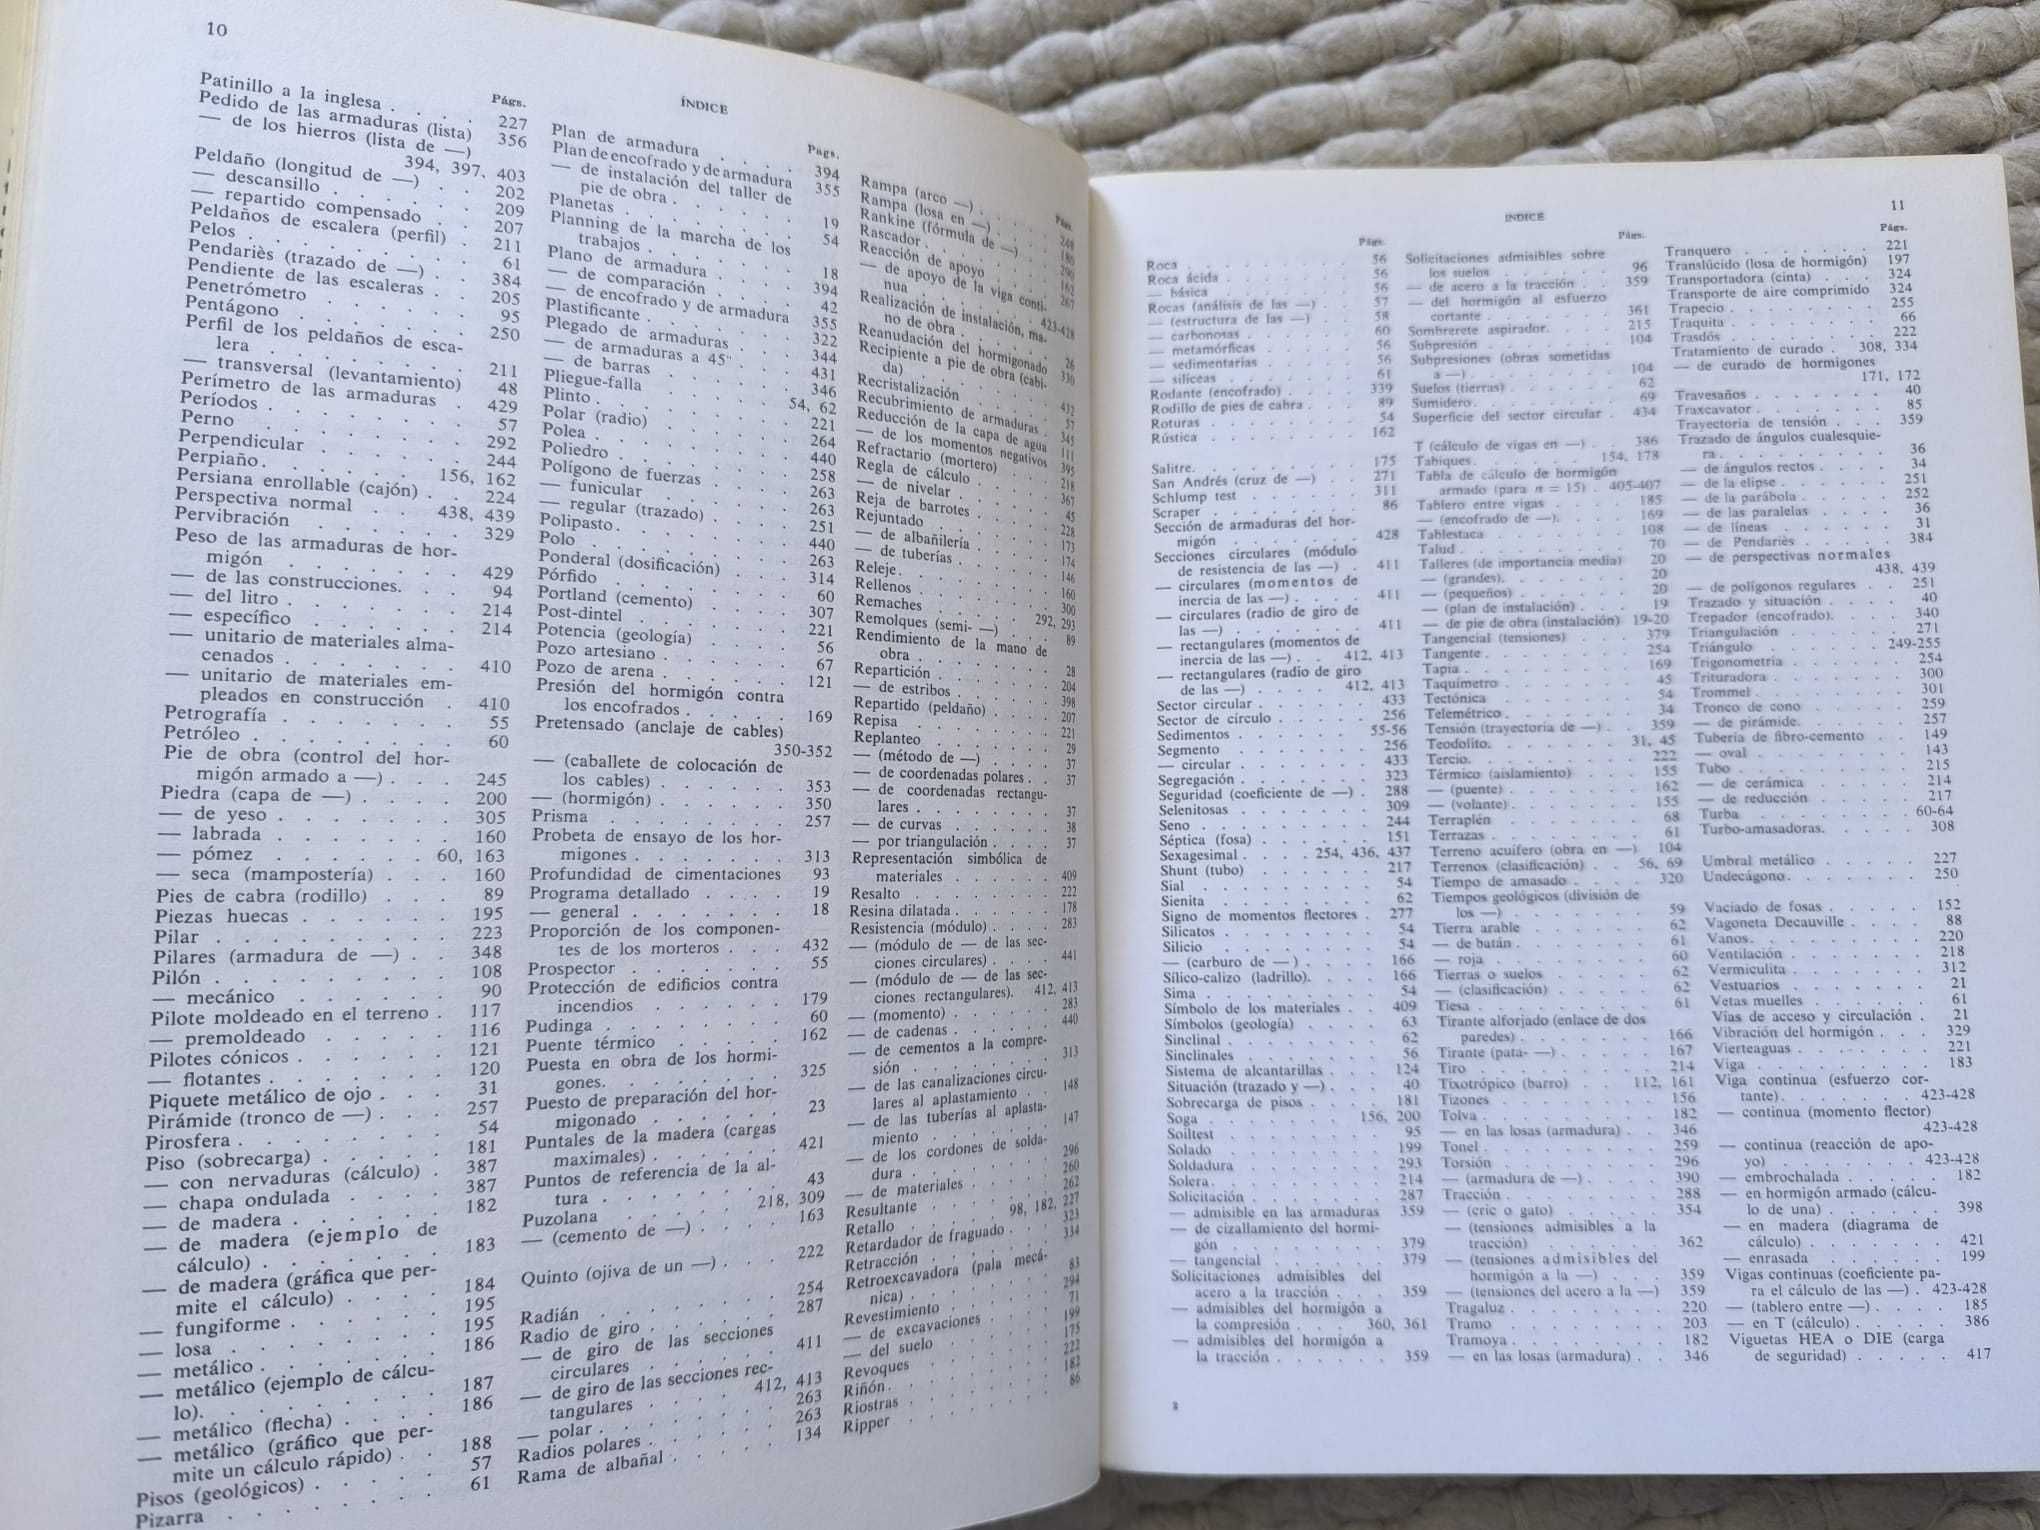 10
ÍNDICE
Págs.
Patinillo a la inglesa . . . . 227
Pedido de las armaduras (lista) 356
— de los hierros (lista de —)
394, 397, 403
Peldaño (longitud de —) . . 202
— descansillo . . . . . . 209
— repartido compensado . . 207
Peldaños de escalera (perfil) . 211
Pelos . . . . . . . . 61
Pendariès (trazado de —) . . 384
Pendiente de las escaleras . . 205
Penetrómetro . . . . . . 95
Pentágono . . . . . . . 250
Perfil de los peldaños de esca-
lera . . . . . . . . 211
— transversal (levantamiento) 48
Perímetro de las armaduras . 429
Períodos . . . . . . . 57
Perno . . . . . . . . 292
Perpendicular . . . . . . 244
Perpiaño. . . . . . 156, 162
Persiana enrollable (cajón) . . 224
Perspectiva normal . . 438, 439
Pervibración . . . . . . 329
Peso de las armaduras de hor-
migón . . . . . . . 429
— de las construcciones. . . 94
— del litro . . . . . . . 214
— específico . . . . . . 214
— unitario de materiales alma-
cenados . . . . . . . 410
— unitario de materiales em-
pleados en construcción . 410
Petrografía . . . . . . . 55
Petróleo . . . . . . . . 60
Pie de obra (control del hor-
migón armado a —) . . . 245
Piedra (capa de —) . . . . 200
— de yeso . . . . . . . 305
— labrada . . . . . . . 160
— pómez . . . . . . 60, 163
— seca (mampostería) . . . 160
Pies de cabra (rodillo) . . . 89
Piezas huecas . . . . . . 195
Pilar . . . . . . . . . 223
Pilares (armadura de —) . . 348
Pilón . . . . . . . . . 108
— mecánico . . . . . . 90
Pilote moldeado en el terreno . 117
— premoldeado . . . . . 116
Pilotes cónicos . . . . . . 121
— flotantes . . . . . . . 120
Piquete metálico de ojo . . . 31
Pirámide (tronco de —) . . . 257
Pirosfera . . . . . . . . 54
Piso (sobrecarga) . . . . . 181
— con nervaduras (cálculo) . 387
— chapa ondulada . . . . 387
— de madera . . . . . . 182
— de madera (ejemplo de
cálculo) . . . . . . . 183
— de madera (gráfica que per-
mite el cálculo) . . . . 184
— fungiforme . . . . . . 195
— losa . . . . . . . . 195
— metálico . . . . . . . 186
— metálico (ejemplo de cálcu-
lo). . . . . . . . . 187
— metálico (flecha) . . . . 186
— metálico (gráfico que per-
mite un cálculo rápido) . . 188
Pisos (geológicos) . . . . . 57
Pizarra . . . . . . . . 61
Págs.
Plan de armadura . . . . 394
Plan de encofrado y de armadura 355
— de instalación del taller de
pie de obra . . . . . . 19
Planetas . . . . . . . 54
Planning de la marcha de los
trabajos . . . . . . . 18
Plano de armadura . . . . 394
— de comparación . . . . 42
— de encofrado y de armadura 355
Plastificante . . . . . . 322
Plegado de armaduras . . . 344
— de armaduras a 45° . . . 431
— de barras . . . . . . 346
Pliegue-falla . . . . . 54, 62
Plinto . . . . . . . . 221
Polar (radio) . . . . . . 264
Polea . . . . . . . . 440
Poliedro . . . . . . . 258
Polígono de fuerzas . . . . 263
— funicular . . . . . . 263
— regular (trazado) . . . . 251
Polipasto. . . . . . . . 440
Polo . . . . . . . . . 263
Ponderal (dosificación) . . . 314
Pórfido . . . . . . . . 60
Portland (cemento) . . . . 307
Post-dintel . . . . . . . 221
Potencia (geología) . . . . 56
Pozo artesiano . . . . . . 67
Pozo de arena . . . . . . 121
Presión del hormigón contra
los encofrados . . . . . 169
Pretensado (anclaje de cables)
350-352
— (caballete de colocación de
los cables) . . . . . . 353
— (hormigón) . . . . . . 350
Prisma . . . . . . . . 257
Probeta de ensayo de los hor-
migones . . . . . . . 313
Profundidad de cimentaciones 93
Programa detallado . . . . 19
— general . . . . . . . 18
Proporción de los componen-
tes de los morteros . . . 432
Prospector . . . . . . . 55
Protección de edificios contra
incendios . . . . . 179
Pudinga . . . . . . . . 60
Puente térmico . . . . . . 162
Puesta en obra de los hormi-
gones. . . . . . . . 325
Puesto de preparación del hor-
migonado . . . . . . 23
Puntales de la madera (cargas
maximales) . . . . . . 421
Puntos de referencia de la al-
tura . . . . . . . . 43
Puzolana . . . . . 218, 309
— (cemento de —) . . . . 163
Quinto (ojiva de un —) . . . 222
Radián . . . . . . . . 254
Radio de giro . . . . . . 287
— de giro de las secciones
circulares . . . . . . 411
— de giro de las secciones rec-
tangulares . . . . 412, 413
— polar . . . . . . . . 263
Radios polares . . . . . . 263
Rama de albañal . . . . . 134
Págs.
Rampa (arco —) . . . . . 248
Rampa (losa en —) . . . . 180
Rankine (fórmula de —) . . . 290
Rascador . . . . . . . 162
Reacción de apoyo . . . . 267
— de apoyo de la viga conti-
nua . . . . . . 423-428
Realización de instalación, ma-
no de obra . . . . . . 26
Reanudación del hormigonado 330
Recipiente a pie de obra (cabi-
da) . . . . . . . . 432
Recristalización . . . . . 57
Recubrimiento de armaduras . 345
Reducción de la capa de agua 111
— de los momentos negativos 395
Refractario (mortero) . . . 218
Regla de cálculo . . . . . 367
— de nivelar . . . . . . 45
Reja de barrotes . . . . . 228
Rejuntado . . . . . . . 173
— de albañilería . . . . . 174
— de tuberías . . . . . . 146
Releje. . . . . . . . . 160
Rellenos . . . . . . . . 300
Remaches . . . . . 292, 293
Remolques (semi- —) . . . . 89
Rendimiento de la mano de
obra . . . . . . . . 28
Repartición . . . . . . . 204
— de estribos . . . . . . 398
Repartido (peldaño) . . . . 207
Repisa . . . . . . . . 221
Replanteo . . . . . . . 29
— (método de —) . . . . . 37
— de coordenadas polares . . 37
— de coordenadas rectangu-
lares . . . . . . . . 37
— de curvas . . . . . . 38
— por triangulación . . . . 37
Representación simbólica de
materiales . . . . . . 409
Resalto . . . . . . . . 222
Resina dilatada . . . . . . 178
Resistencia (módulo) . . . . 283
— (módulo de — de las sec-
ciones circulares) . . . . 441
— (módulo de — de las sec-
ciones rectangulares). 412, 413
— (momento) . . . . . . 283
— de cadenas . . . . . . 440
— de cementos a la compre-
sión . . . . . . . . 313
— de las canalizaciones circu-
lares al aplastamiento . . 148
— de las tuberías al aplasta-
miento . . . . . . . 147
— de los cordones de solda-
dura . . . . . . . . 296
— de materiales . . . . . 260
Resultante . . . . . . . 262
Retallo . . . . . 98, 182, 227
Retardador de fraguado . . . 323
Retracción . . . . . . . 334
Retroexcavadora (pala mecá-
nica) . . . . . . . . 83
Revestimiento . . . . . . 294
— de excavaciones . . . . 71
— del suelo . . . . . . . 199
Revoques . . . . . . . 175
Riñón. . . . . . . . . 222
Riostras . . . . . . . . 182
Ripper . . . . . . . . 86
11
ÍNDICE
Págs.
Roca . . . . . . . . . 56
Roca ácida . . . . . . . 56
— básica . . . . . . . . 56
Rocas (análisis de las —) . . 57
— (estructura de las —) . . . 58
— carbonosas . . . . . . 60
— metamórficas . . . . . 56
— sedimentarias . . . . . 56
— silíceas . . . . . . . 61
Rodante (encofrado) . . . . 339
Rodillo de pies de cabra . . . 89
Roturas . . . . . . . . 54
Rústica . . . . . . . . 162
Salitre. . . . . . . . . 175
San Andrés (cruz de —) . . . 271
Schlump test . . . . . . 311
Scraper . . . . . . . . 86
Sección de armaduras del hor-
migón . . . . . . . 428
Secciones circulares (módulo
de resistencia de las —) . . 411
— circulares (momentos de
inercia de las —) . . . . 411
— circulares (radio de giro de
las —) . . . . . . . 411
— rectangulares (momentos de
inercia de las —) . . 412, 413
— rectangulares (radio de giro
de las —) . . . . 412, 413
Sector circular . . . . . . 433
Sector de círculo . . . . . 256
Sedimentos . . . . . . 55-56
Segmento . . . . . . . 256
— circular . . . . . . . 433
Segregación . . . . . . . 323
Seguridad (coeficiente de —) . 288
Selenitosas . . . . . . . 309
Seno . . . . . . . . . 244
Séptica (fosa) . . . . . . 151
Sexagesimal . . . . 254, 436, 437
Shunt (tubo) . . . . . . 217
Sial . . . . . . . . . 54
Sienita . . . . . . . . 62
Signo de momentos flectores . 277
Silicatos . . . . . . . . 54
Silicio . . . . . . . . 54
— (carburo de —) . . . . 166
Sílico-calizo (ladrillo). . . . 166
Sima . . . . . . . . . 54
Símbolo de los materiales . . 409
Símbolos (geología) . . . . 63
Sinclinal . . . . . . . . 62
Sinclinales . . . . . . . 56
Sistema de alcantarillas . . . 124
Situación (trazado y —) . . . 40
Sobrecarga de pisos . . . . 181
Soga . . . . . . . 156, 200
Soiltest . . . . . . . . 95
Solado . . . . . . . . 199
Soldadura . . . . . . . 293
Solera. . . . . . . . . 214
Solicitación . . . . . . . 287
— admisible en las armaduras 359
— de cizallamiento del hormi-
gón . . . . . . . . 379
— tangencial . . . . . . 379
Solicitaciones admisibles del
acero a la tracción . . . 359
— admisibles del hormigón a
la compresión . . . 360, 361
— admisibles del hormigón a
la tracción . . . . . . 359
8
Págs.
Solicitaciones admisibles sobre
los suelos . . . . . . 96
— de acero a la tracción . . 359
— del hormigón al esfuerzo
cortante . . . . . . . 361
Sombrerete aspirador. . . . 215
Subpresión . . . . . . . 104
Subpresiones (obras sometidas
a —) . . . . . . . . 104
Suelos (tierras) . . . . . . 62
Sumidero. . . . . . . . 69
Superficie del sector circular . 434
T (cálculo de vigas en —) . . 386
Tabiques. . . . . . 154, 178
Tabla de cálculo de hormigón
armado (para n = 15) . 405-407
Tablero entre vigas . . . . 185
— (encofrado de —). . . . 169
Tablestaca . . . . . . . 108
Talud . . . . . . . . . 70
Talleres (de importancia media) 20
— (grandes). . . . . . . 20
— (pequeños) . . . . . . 20
— (plan de instalación) . . . 19
— de pie de obra (instalación) 19-20
Tangencial (tensiones) . . . 379
Tangente . . . . . . . 254
Tapia . . . . . . . . . 169
Taquímetro . . . . . . . 45
Tectónica . . . . . . . 54
Telemétrico . . . . . . . 34
Tensión (trayectoria de —) . . 359
Teodolito. . . . . . . 31, 45
Tercio. . . . . . . . . 222
Térmico (aislamiento) . . . 155
— (puente) . . . . . . . 162
— (volante) . . . . . . . 155
Terraplén . . . . . . . 68
Terrazas . . . . . . . . 61
Terreno acuífero (obra en —) 104
Terrenos (clasificación) . . 56, 69
Tiempo de amasado . . . . 320
Tiempos geológicos (división de
los —) . . . . . . . 59
Tierra arable . . . . . . 62
— de batán . . . . . . . 61
— roja . . . . . . . . 60
Tierras o suelos . . . . . 62
— (clasificación) . . . . . 62
Tiesa . . . . . . . . . 61
Tirante alforjado (enlace de dos
paredes) . . . . . . . 166
Tirante (pata- —) . . . . . 167
Tiro . . . . . . . . . 214
Tixotrópico (barro) . . 112, 161
Tizones . . . . . . . . 156
Tolva . . . . . . . . . 182
— en las losas (armadura) . . 346
Tonel . . . . . . . . . 259
Torsión . . . . . . . . 296
— (armadura de —) . . . . 390
Tracción . . . . . . . . 288
— (cric o gato) . . . . . 354
— (tensiones admisibles a la
tracción) . . . . . . 362
— (tensiones admisibles del
hormigón a la —) . . . 359
— (tensiones del acero a la —) 359
Tragaluz . . . . . . . . 220
Tramo . . . . . . . . 203
Tramoya . . . . . . . . 182
— en las losas (armadura) . . 346
Págs.
Tranquero . . . . . . . 221
Translúcido (losa de hormigón) 197
Transportadora (cinta) . . . 324
Transporte de aire comprimido 324
Trapecio . . . . . . . . 255
Traquita . . . . . . . . 66
Trasdós . . . . . . . . 222
Tratamiento de curado . 308, 334
— de curado de hormigones
171, 172
Travesaños . . . . . . . 40
Traxcavator . . . . . . . 85
Trayectoria de tensión . . . 359
Trazado de ángulos cualesquie-
ra . . . . . . . . . 36
— de ángulos rectos . . . . 34
— de la elipse . . . . . . 251
— de la parábola . . . . . 252
— de las paralelas . . . . 36
— de líneas . . . . . . . 31
— de Pendariès . . . . . 384
— de perspectivas normales
438, 439
— de polígonos regulares . . 251
Trazado y situación . . . . 40
Trepador (encofrado). . . . 340
Triangulación . . . . . . 271
Triángulo . . . . . 249-255
Trigonometría . . . . . . 254
Trituradora . . . . . . . 300
Trommel . . . . . . . . 301
Tronco de cono . . . . . 259
— de pirámide. . . . . . 257
Tubería de fibro-cemento . . 149
— oval . . . . . . . . 143
Tubo . . . . . . . . . 215
— de cerámica . . . . . . 214
— de reducción . . . . . 217
Turba . . . . . . . . 60-64
Turbo-amasadoras. . . . . 308
Umbral metálico . . . . . 227
Undecágono. . . . . . . 250
Vaciado de fosas . . . . . 152
Vagoneta Decauville . . . . 88
Vanos. . . . . . . . . 220
Ventilación . . . . . . . 218
Vermiculita . . . . . . . 312
Vestuarios . . . . . . . 21
Vetas muelles . . . . . . 61
Vías de acceso y circulación . 21
Vibración del hormigón . . . 329
Vierteaguas . . . . . . . 221
Viga . . . . . . . . . 183
Viga continua (esfuerzo cor-
tante). . . . . . . 423-428
— continua (momento flector)
423-428
— continua (reacción de apo-
yo) . . . . . . . 423-428
— embrochalada . . . . . 182
— en hormigón armado (cálcu-
lo de una) . . . . . . 398
— en madera (diagrama de
cálculo) . . . . . . . 421
— enrasada . . . . . . . 199
Vigas continuas (coeficiente pa-
ra el cálculo de las —) . 423-428
— (tablero entre —) . . . . 185
— en T (cálculo) . . . . . 386
Viguetas HEA o DIE (carga
de seguridad) . . . . . 417